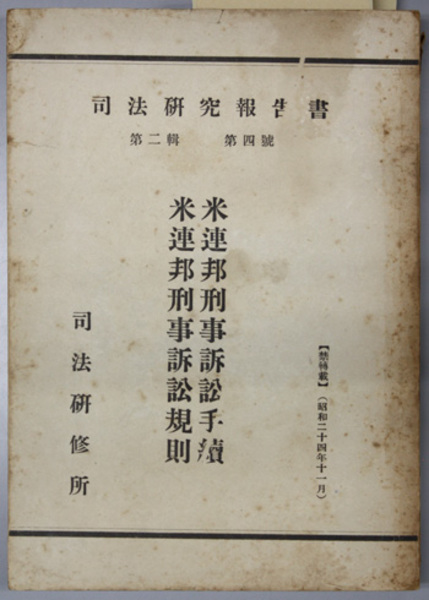 司法研究報告書
第二輯 第四號
【禁轉載】(昭和二十四年十一月)
米連邦刑事訴訟手續
米連邦刑事訴訟規則
司法研修所